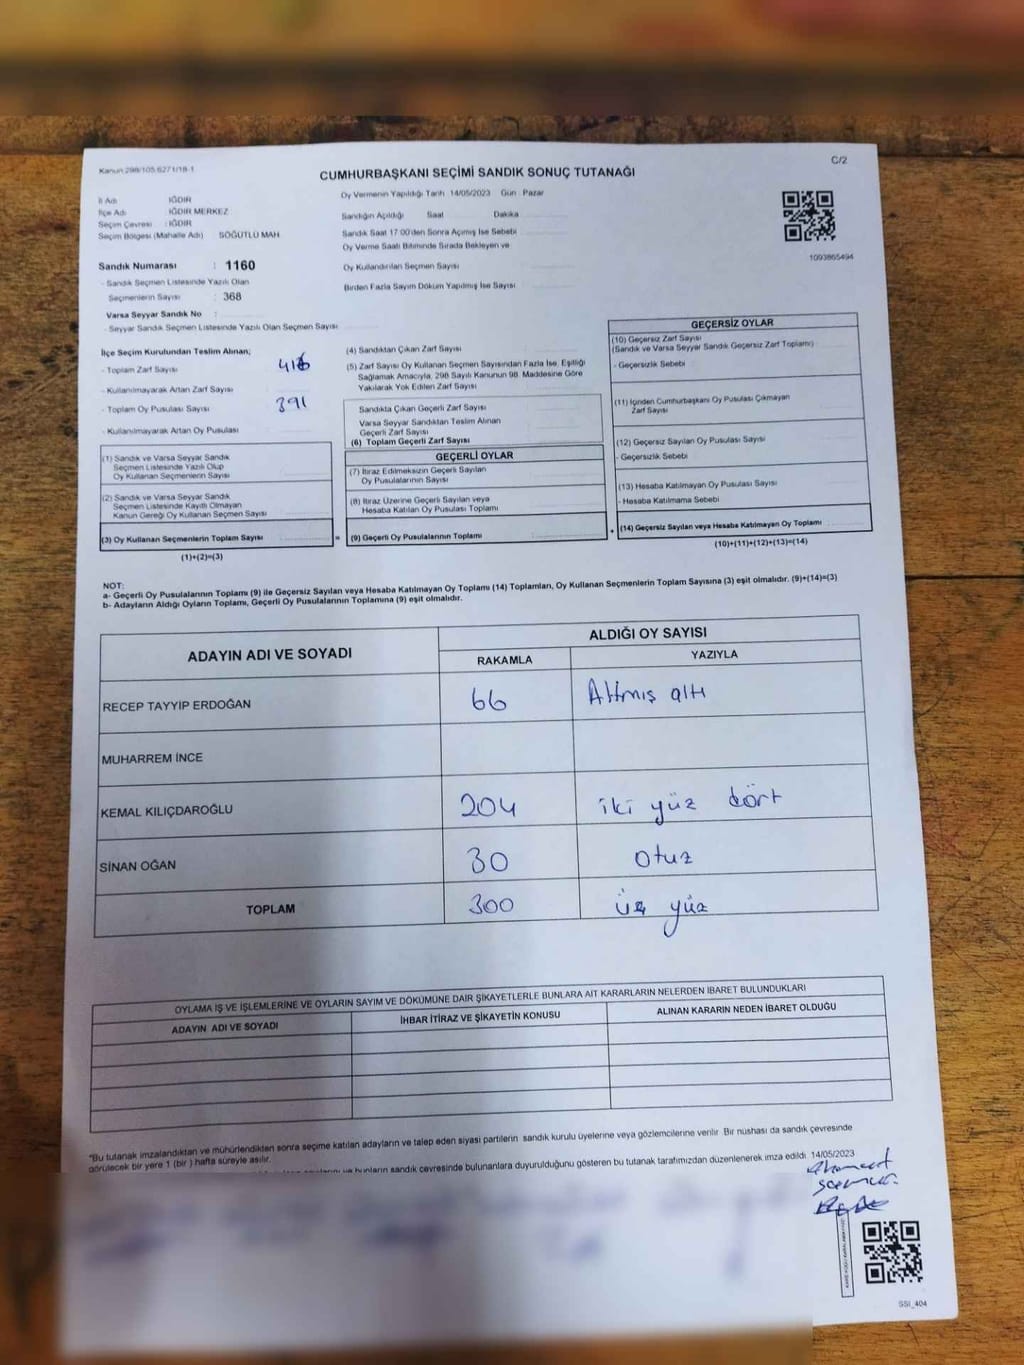 Kanun 298/105,6271/18-1
C/2
CUMHURBAŞKANI SEÇİMİ SANDIK SONUÇ TUTANAĞI
İl Adı : IĞDIR
İlçe Adı : IĞDIR MERKEZ
Seçim Çevresi : IĞDIR
Seçim Bölgesi (Mahalle Adı) SÖĞÜTLÜ MAH.
Sandık Numarası : 1160
- Sandık Seçmen Listesinde Yazılı Olan
Seçmenlerin Sayısı : 368
Varsa Seyyar Sandık No :
- Seyyar Sandık Seçmen Listesinde Yazılı Olan Seçmen Sayısı
Oy Vermenin Yapıldığı Tarih 14/05/2023 Gün : Pazar
Sandığın Açıldığı Saat Dakika
Sandık Saat 17:00'den Sonra Açımış İse Sebebi
Oy Verme Saati Bitiminde Sırada Bekleyen ve
Oy Kullandırılan Seçmen Sayısı
Birden Fazla Sayım Döküm Yapılmış İse Sayısı
1093865494
İlçe Seçim Kurulundan Teslim Alınan;
- Toplam Zarf Sayısı
- Kullanılmayarak Artan Zarf Sayısı
- Toplam Oy Pusulası Sayısı 391
- Kullanılmayarak Artan Oy Pusulası
(1) Sandık ve Varsa Seyyar Sandık
Seçmen Listesinde Yazılı Olup
Oy Kullanan Seçmenlerin Sayısı
(2) Sandık ve Varsa Seyyar Sandık
Seçmen Listesinde Kayıtlı Olmayan
Kanun Gereği Oy Kullanan Seçmen Sayısı
(3) Oy Kullanan Seçmenlerin Toplam Sayısı
(1)+(2)=(3)
=
(4) Sandıktan Çıkan Zarf Sayısı
(5) Zarf Sayısı Oy Kullanan Seçmen Sayısından Fazla İse, Eşitliği
Sağlamak Amacıyla, 298 Sayılı Kanunun 98. Maddesine Göre
Yakılarak Yok Edilen Zarf Sayısı
Sandıkta Çıkan Geçerli Zarf Sayısı
Varsa Seyyar Sandıktan Teslim Alınan
Geçerli Zarf Sayısı
(6) Toplam Geçerli Zarf Sayısı
GEÇERLİ OYLAR
(7) İtiraz Edilmeksizin Geçerli Sayılan
Oy Pusulalarının Sayısı
(8) İtiraz Üzerine Geçerli Sayılan veya
Hesaba Katılan Oy Pusulası Toplamı
(9) Geçerli Oy Pusulalarının Toplamı
+
GEÇERSİZ OYLAR
(10) Geçersiz Zarf Sayısı
(Sandık ve Varsa Seyyar Sandık Geçersiz Zarf Toplamı)
- Geçersizlik Sebebi
(11) İçinden Cumhurbaşkanı Oy Pusulası Çıkmayan
Zarf Sayısı
(12) Geçersiz Sayılan Oy Pusulası Sayısı
- Geçersizlik Sebebi
(13) Hesaba Katılmayan Oy Pusulası Sayısı
- Hesaba Katılmama Sebebi
(14) Geçersiz Sayılan veya Hesaba Katılmayan Oy Toplamı
(10)+(11)+(12)+(13)=(14)
NOT:
a- Geçerli Oy Pusulalarının Toplamı (9) ile Geçersiz Sayılan veya Hesaba Katılmayan Oy Toplamı (14) Toplamları, Oy Kullanan Seçmenlerin Toplam Sayısına (3) eşit olmalıdır. (9)+(14)=(3)
b- Adayların Aldığı Oyların Toplamı, Geçerli Oy Pusulalarının Toplamına (9) eşit olmalıdır.
ADAYIN ADI VE SOYADI
ALDIĞI OY SAYISI
RAKAMLA YAZIYLA
RECEP TAYYİP ERDOĞAN 66 Altmış altı
MUHARREM İNCE
KEMAL KILIÇDAROĞLU 204 iki yüz dört
SİNAN OĞAN 30 otuz
TOPLAM 300 üç yüz
OYLAMA İŞ VE İŞLEMLERİNE VE OYLARIN SAYIM VE DÖKÜMÜNE DAİR ŞİKAYETLERLE BUNLARA AİT KARARLARIN NELERDEN İBARET BULUNDUKLARI
ADAYIN ADI VE SOYADI İHBAR İTİRAZ VE ŞİKAYETİN KONUSU ALINAN KARARIN NEDEN İBARET OLDUĞU
*Bu tutanak imzalandıktan ve mühürlendikten sonra seçime katılan adayların ve talep eden siyasi partilerin sandık kurulu üyelerine veya gözlemcilerine verilir. Bir nüshası da sandık çevresinde
görülecek bir yere 1 (bir ) hafta süreyle asılır.
bunların sandık çevresinde bulunanlara duyurulduğunu gösteren bu tutanak tarafımızdan düzenlenerek imza edildi. 14/05/2023
SSİ_404